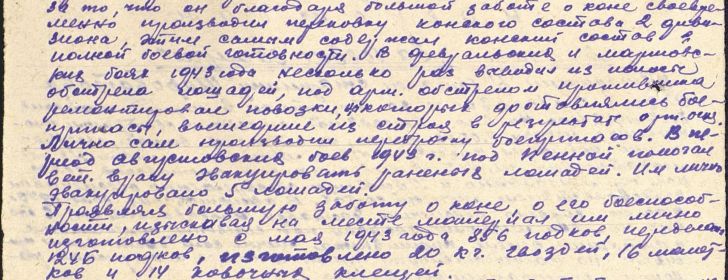 за то, что он благодаря большой заботе о коне своевре-
менно производил перековку конского состава 2 диви-
зиона, этим самым содержал конский состав в
полной боевой готовности. В февральских и мартовс-
ких боях 1943 года несколько раз выводил из полосы
обстрела лошадей, под арт. обстрелом противника
ремонтировал повозки, на которых доставлялись бое-
припасы, вышедшие из строя в результате арт. огн.
Лично сам производил перевозку боеприпасов. В пе-
риод августовских боев 1943 г. под помогал
вет. врачу эвакуировать раненых лошадей. Им лично
эвакуировано 5 лошадей.
Проявляя большую заботу о коне, о его боеспособ-
ности, изыскивая на месте материал им лично
изготовлено с мая 1943 года 886 подков,
1246 подков, изготовлено 20 кг. гвоздей, 16 молот-
ков и 14 ковочных клещей.